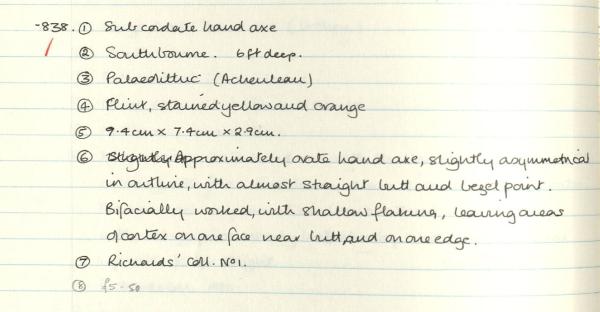 -838. ① Subcordate hand axe
② Southbourne. 6ft deep.
③ Palaeolithic (Acheulean)
④ Flint, stained yellow and orange
⑤ 9.4cm × 7.4cm × 2.9cm.
⑥ Approximately ovate hand axe, slightly asymmetrical
in outline, with almost straight butt and bezel point.
Bifacially worked, with shallow flaking, leaving areas
of cortex on one face near butt, and on one edge.
⑦ Richards' Coll. No1.
⑧ £5-50